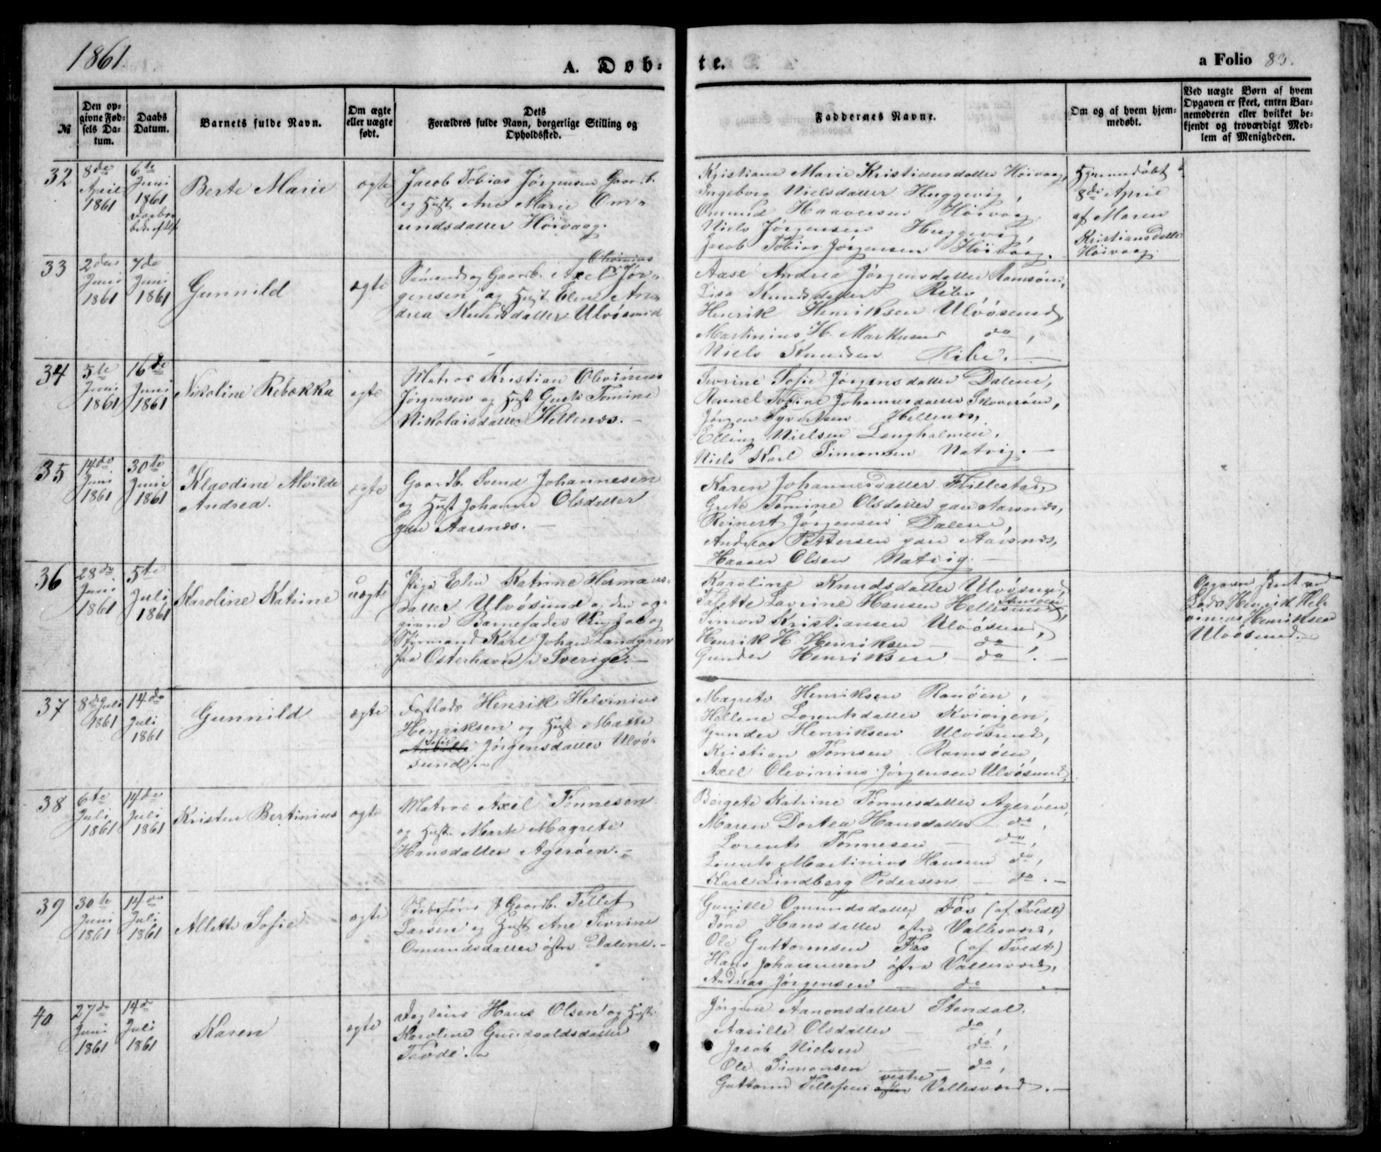 1861
A. Døb-
te.
a Folio 83.
№
Den opgivne Fødsels Datum.
Daabs Datum.
Barnets fulde Navn.
Om ægte eller uægte født.
Dets Forældres fulde Navn, borgerlige Stilling og Opholdssted.
Faddernes Navne.
Om og af hvem hjemmedøbt.
Ved uægte Børn af hvem Opgaven er skeet, enten Barnemoderen eller hvilket bekjendt og troværdigt Medlem af Menigheden.
32
8de April 1861
6te Juni 1861
Berte Marie
ægte
Jacob Tobias Jørgensen Gaardb.
og Hust. Ane Marie Om-
undsdatter Höivaag.
Kristiane Marie Kristiansdatter Höivaag,
Ingeborg Nielsdatter Heggevig,
Omund Haaversen Höivaag
Niels Jørgensen Heggevig,
Jacob Tobias Jørgensen Höivaag.
Hjemmedöbt
8de April
af Maren
Kristiansdatter
Höivaag.
33
2den Juni 1861
7de Juni 1861
Gunnild
ægte
Sömand og Gaardb. Axel Olivinius Jør-
gensen og Hust. Elene An-
drea Knudsdatter Ulvösund
Aase Andrea Jørgensdatter Ramsöen,
Lisa Knudsdatter Kibe
Henrik Henriksen Ulvösund,
Martinius H. Markusen do,
Niels Knudsen Kibe.
34
5te Juni 1861
16de Juni 1861
Nikoline Rebekka
ægte
Matros Kristian Olvinius
Jörgensen og Hust Gusti Tomine
Nikolaisdatter Hellenes.
Severine Sofie Jørgensdatter Dalene,
Johannesdatter Skoveröen,
Jørgen Syvertsen Hellenes,
Elling Nielsen Langholmen,
Niels Karl Simonsen Natvig.
35
14de Juni 1861
30te Juni 1861
Klaodine Alvilde
Andrea.
ægte
Gaardb. Svend Johannesen
og Hust Johanne Olsdatter
gan Aarsnes.
Karen Johannesdatter Fillestad,
Grete Tomine Olsdatter gan Aarsnes,
Reinert Jørgensen Dalene,
Andreas Pettersen gan Aarsnes,
Haaver Olsen Natvig.
36
28de Juni 1861
5te Juli 1861
Karoline Katrine
uægte
Pige Elen Katrine Herman-
datter Ulvösund og den op-
givne Barnefader Ungkarl og
Styrmand Karl Johan Landgren
fra Osterhavn i Sverige.
Karoline Knudsdatter Ulvösund,
Jolette Lavrine Hansen Hellesund,
Simon Kristiansen Ulvösund,
Henrik H. Henriksen do,
Gunder Henriksen do.
Opgaven skeet af
Henriksen
Ulvösund.
37
8de Juli 1861
14de Juli 1861
Gunnild
ægte
Henrik Helvinius
Henriksen og Hust Mætte
Sofie Jørgensdatter Ulvö-
sund.
Magrete Henriksen Ramöen,
Hellene Lorentsdatter Kvivigen,
Gunder Henriksen Ulvösund,
Kristian Tomsen Ramsöen,
Axel Olevinius Jørgensen Ulvösund,
38
6te Juli 1861
14de Juli 1861
Kristen Bertinius
ægte
Matros Axel Tönnesen
og Hust. Marte Magrete
Hansdatter Ageröen.
Börgete Katrine Tönnesdatter Ageröen,
Maren Dortea Hansdatter do,
Lorents Tönnesen do,
Lorents Martinius Hansen do,
Karl Lindberg Pedersen do.
39
30te Juni 1861
14de Juli 1861
Allette Sofie
ægte
Gaardb. Tellef
Larsen og Hust Ane Severine
Omundsdatter östre Dalene.
Gunille Omundsdatter Fös (af Tvedt)
Tone Hansdatter östre Vallesverd,
Ole Guttormsen Fös (af Tvedt)
Hans Johannesen östre Vallesverd,
Andreas Jørgensen do
40
27de Juni 1861
14de Juli 1861
Karen
ægte
Hans Olsen og Hust.
Karoline Gundvaldsdatter
Tvede.
Jørgine Aanonsdatter Stendal,
Aasille Olsdatter do,
Jacob Nielsen do,
Ole Simonsen do,
Guttorm Tellefsen vestre Vallesverd.